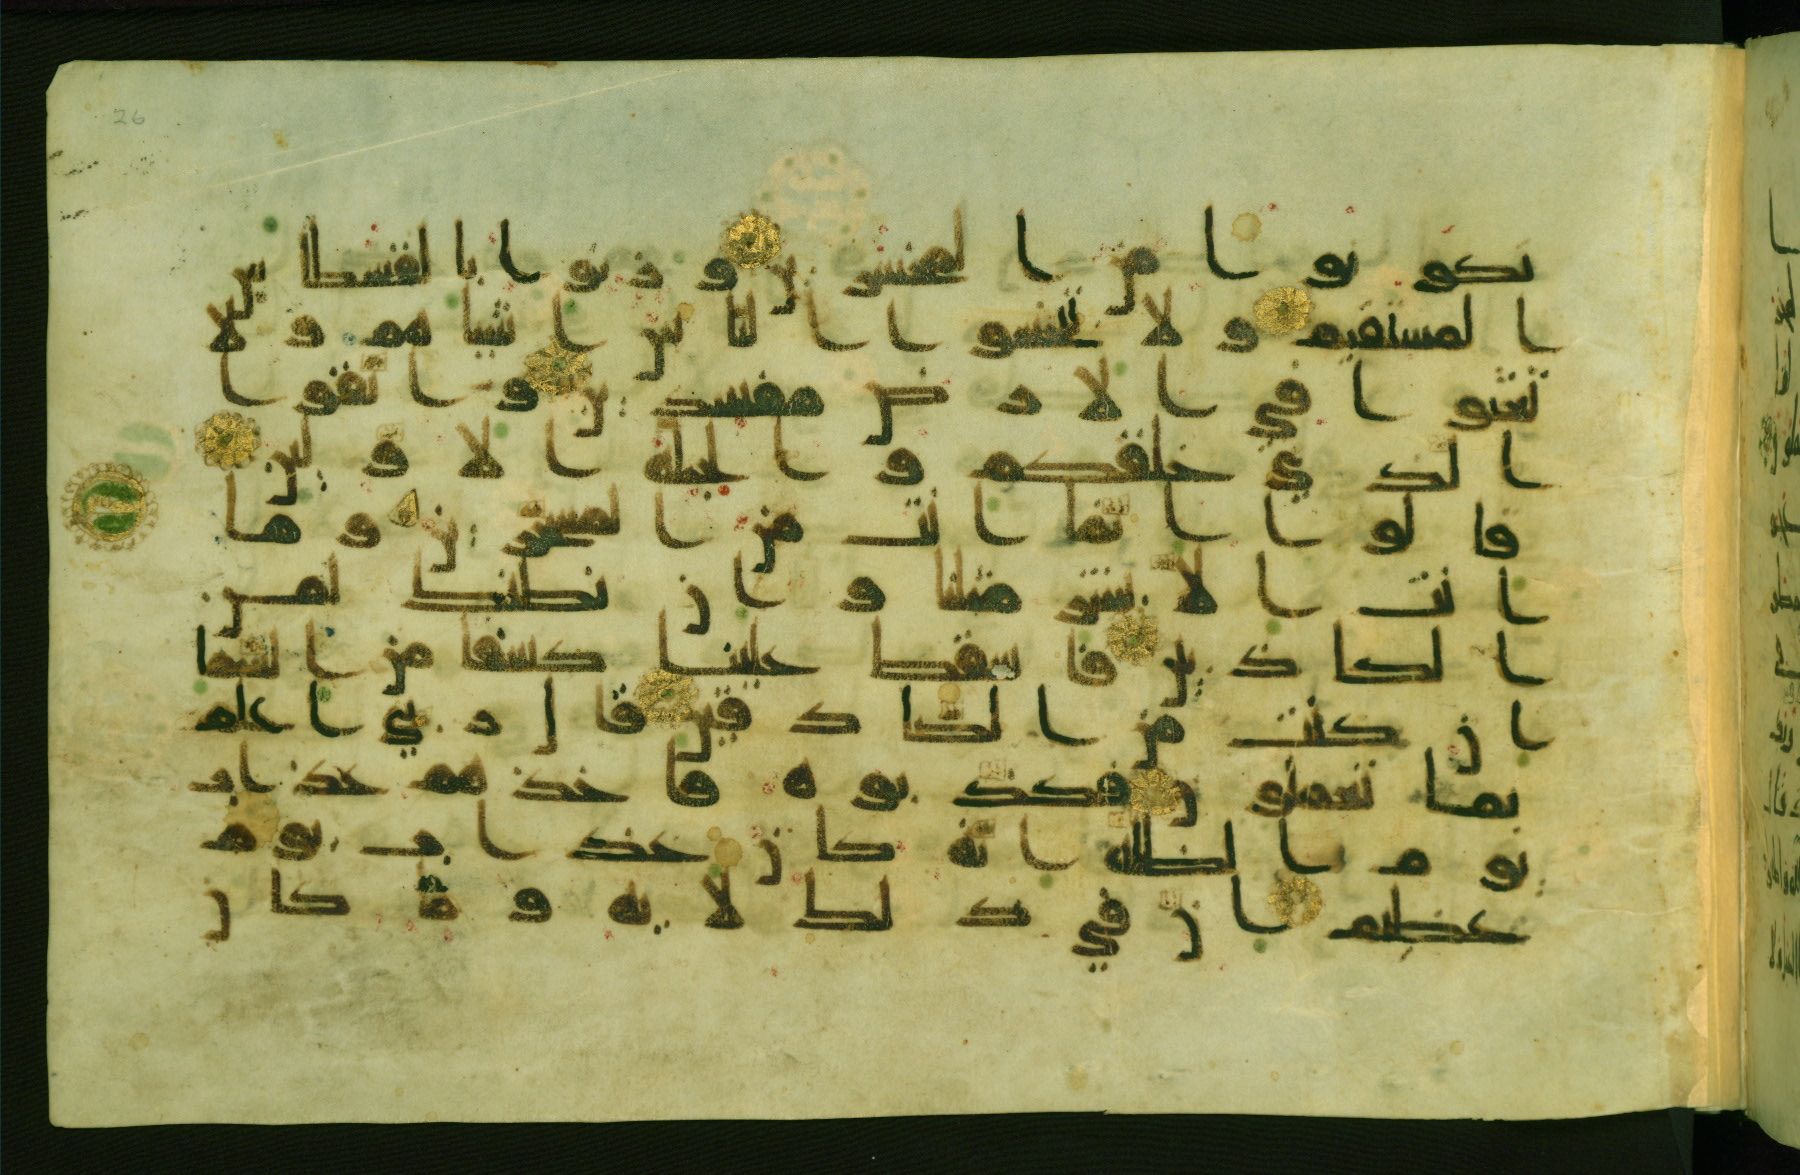 26
تكونوا من المخسرين وزنوا بالقسطس
المستقيم ولا تبخسوا الناس اشياهم ولا
تعثوا في الارض مفسدين واتقوا
الذي خلقكم والجبلة الاولين
قالوا انما انت من المسحرين وما
انت الا بشر مثلنا وان نظنك لمن
الكذبين فاسقط علينا كسفا من السما
ان كنت من الصدقين قال ربي اعلم
بما تعملون فكذبوه فاخذهم عذاب
يوم الظلة انه كان عذاب يوم
عظيم ان في ذلك لاية وما كان